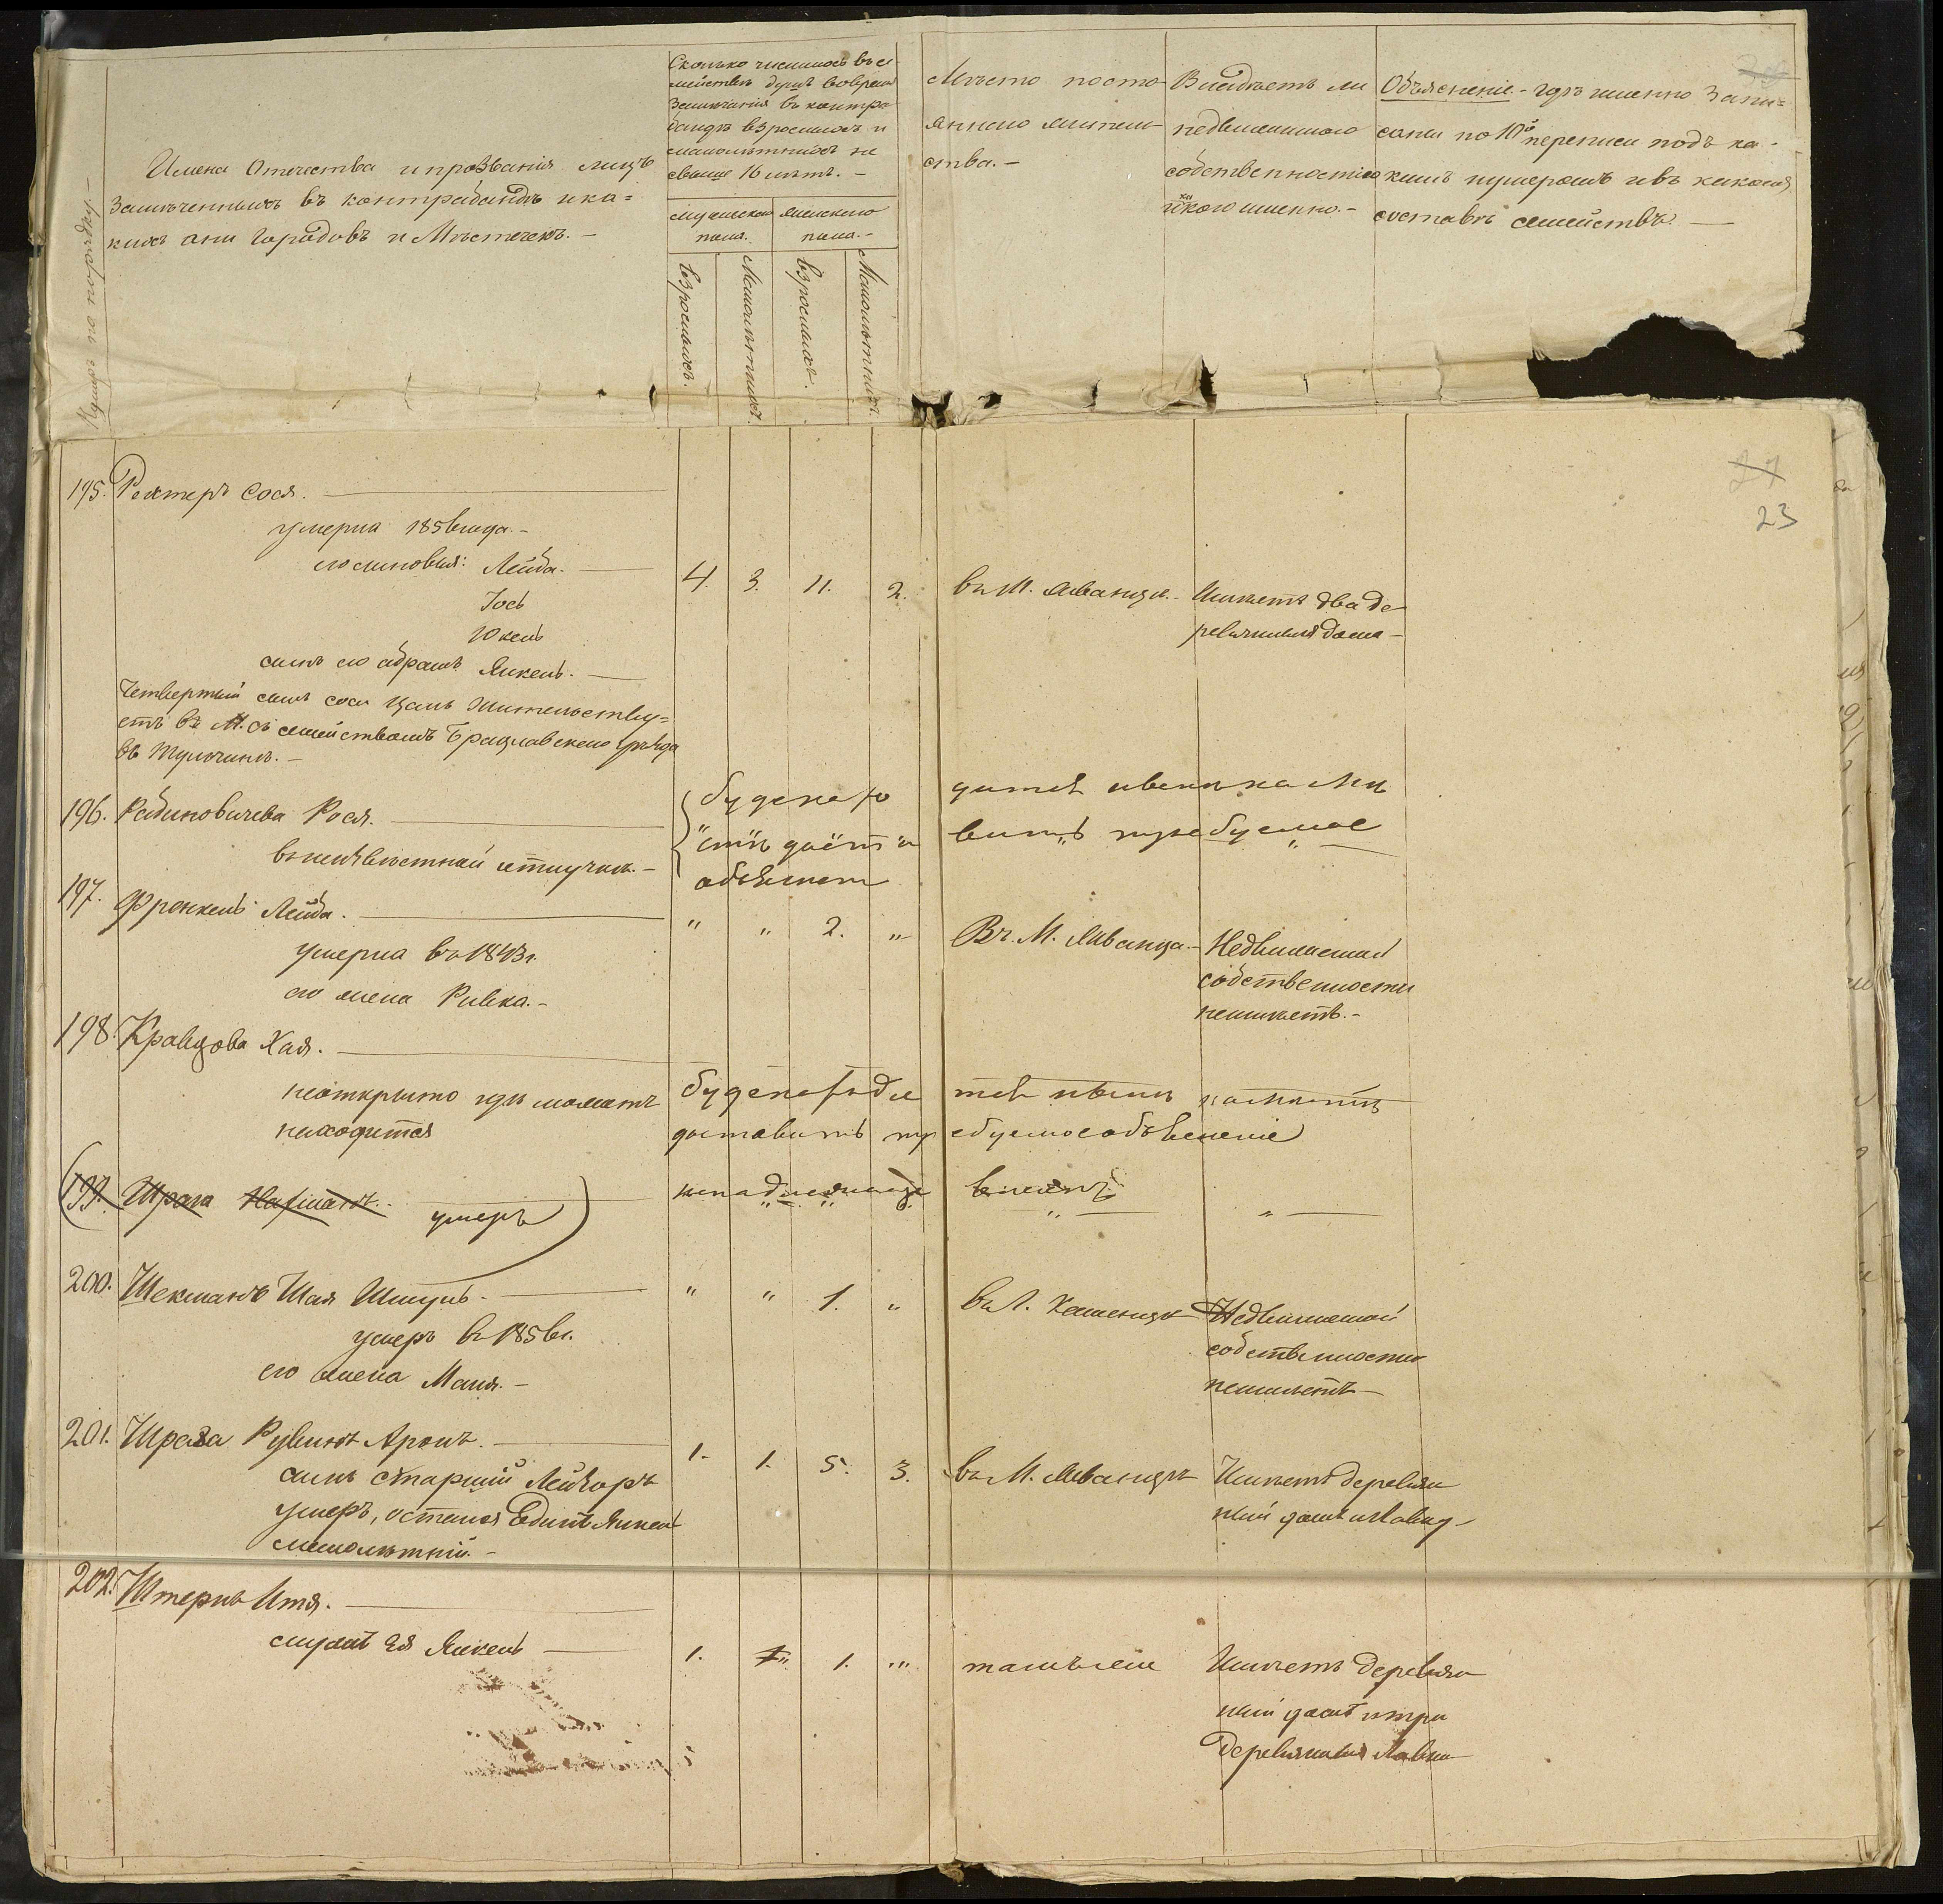 Нумеръ по порядку.—
Имена Отечества и прозванія лицъ
Замѣченныхъ въ контрабандѣ и ка=
кихъ они Городовъ и Мѣстечекъ.—
Сколько числилось въ се
мействѣ душъ во время
Замѣчанія въ контра
бандѣ взрослыхъ и
малолѣтнихъ не
свыше 16 лѣтъ.—
мужескаго пола.
женскаго пола.—
взрослыхъ.
Малолѣтнихъ.
взрослыхъ.
Малолѣтнихъ.
Мѣсто посто
яннаго житель
ства.—
Владѣетъ ли
недвижимою
собственностію
и какою именно.—
Объясненіе — гдѣ именно Запи=
саны по 10й переписи подъ ка-
кимъ нумеромъ и въ какомъ
составѣ семействъ.—
23
195. Рехтеръ Сося.
умерла 1856 года.—
его сыновья: Лейба.
Іось
Юкель
сынъ его Абрамъ Янкель.
4. 3. 11. 2.
въ М. Жванцѣ.
Имѣетъ два де
ревянныя дома—
Четвертый сынъ Соси Цаль жительству=
етъ въ М. съ семействомъ Брацлавскаго уѣзда
въ Тульчинѣ.—
196. Рабиновичева Рося.
въ неизвѣстной отлучкѣ.—
вить требуемое
объясненіе
197. Френкель Лейба.
умерла въ 1843 г.
его жена Ривка.—
" " 2. "
Въ М. Жванцѣ.—
Недвижимой
собственности
неимѣетъ.—
198. Кравцова Хая.
неоткрыто гдѣ можетъ
находится
доставить требуемое объясненіе
199. Шрага Нафтали.
умеръ
200. Шекманъ Шая Шмуль.
умеръ въ 1856 г.
его жена Маня.—
" " 1. "
Недвижимой
собственности
неимѣетъ—
201. Шрага Рувинъ Аронъ.
сынъ старшій Лейзоръ
умеръ, остался Единъ Янкель
малолѣтній.—
1. 1. 5. 3.
въ М. Жванцѣ
Имѣетъ деревян
ный домъ и лавку—
202. Штернъ Итя.
сынъ Ея Янкель
1. " 1. "
тамъ же
Имѣетъ деревян
ный домъ и три
деревянныя Лавки